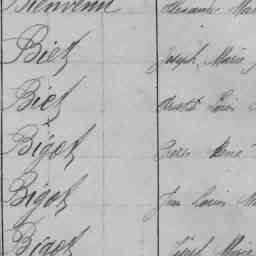 Bienvenu Alexandre Mar
Biet Joseph Marie
Biet Louis
Bigot René
Bigot Jean Louis M
Bigot Joseph Marie